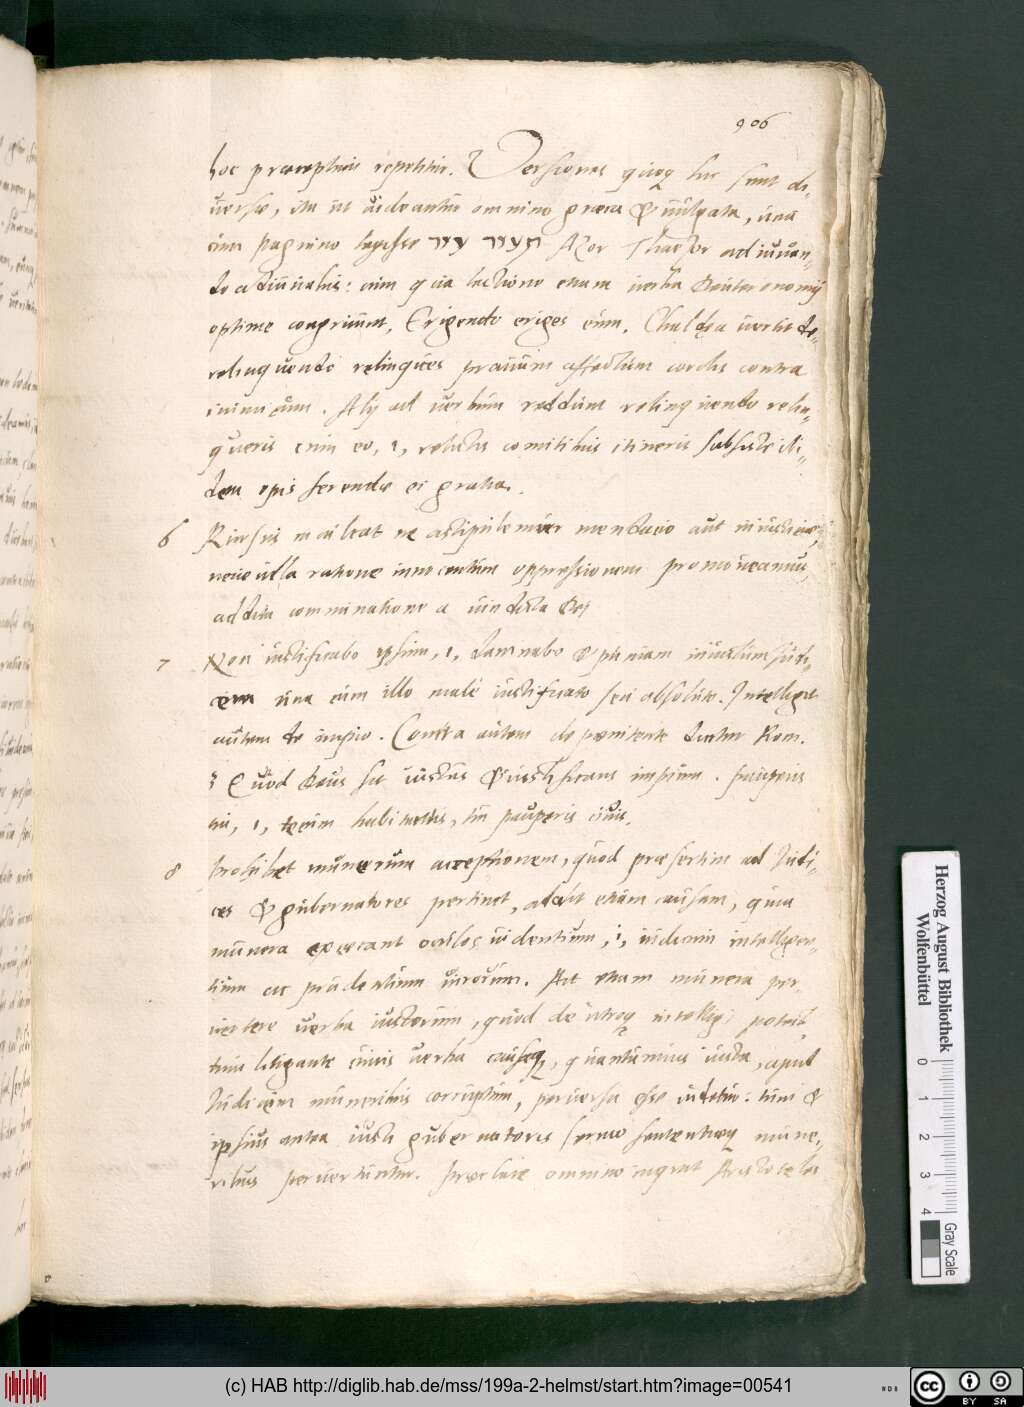 906
hoc præceptum repetitur. Versiones quoq hic sunt di„
uersæ, ita ut uideantur omnino græca & uulgata, una
cum Pagnino legisse עזר תעזר Azor Thaezor adiuuan„
do adiuuabis: cum qua lectione etiam uerba Deuteronomij
optime congruunt, Erigendo eriges eum. Chaldęa uertit de„
relinquendo relinques prauum affectum cordis contra
inimicum. Alij ad uerbum reddunt relinquendo relin„
queris cum eo, i, relictis comitibus itineris subsiste ibi„
dem opis ferendæ ei gratia.
6 Rursus maledicat ne astipulemur mendacio aut iniusticiæ,
neue ulla ratione innocentum oppressionem promoueamus,
addita comminatione a uindicta Dei
7 Non iustificabo ipsum, i, damnabo & puniam iniustum Iudi„
cem una cum illo male iustificato seu absoluto. Intelligit
autem de impio. Contra autem de pœnitente dicitur Rom.
3 Quod Deus sit iustus & iustificans impium. pauperis
tui, i, tecum habitantis, tui pauperis ciuis.
8 Prohibet munerum acceptionem, quod præsertim ad Iudi„
ces & gubernatores pertinet, addit etiam causam, quia
munera exęcant oculos uidentium, i, iudicium intelligen„
tium ac prudentium uirorum. Ait etiam munera per„
uertere uerba iustorum, quod de utroq intelligi potest,
tum litigante cuius uerba causęq, quantumuis iusta, apud
Iudicem muneribus corruptum, peruersa esse uidetur: tum &
ipsius antea iusti gubernatoris sermo sententiaq mune„
ribus peruertuntur. Præclare omnino inquit Aristoteles
Herzog August Bibliothek
Wolfenbüttel
0 1 2 3 4
Gray Scale
(c) HAB http://diglib.hab.de/mss/199a-2-helmst/start.htm?image=00541
cc BY SA